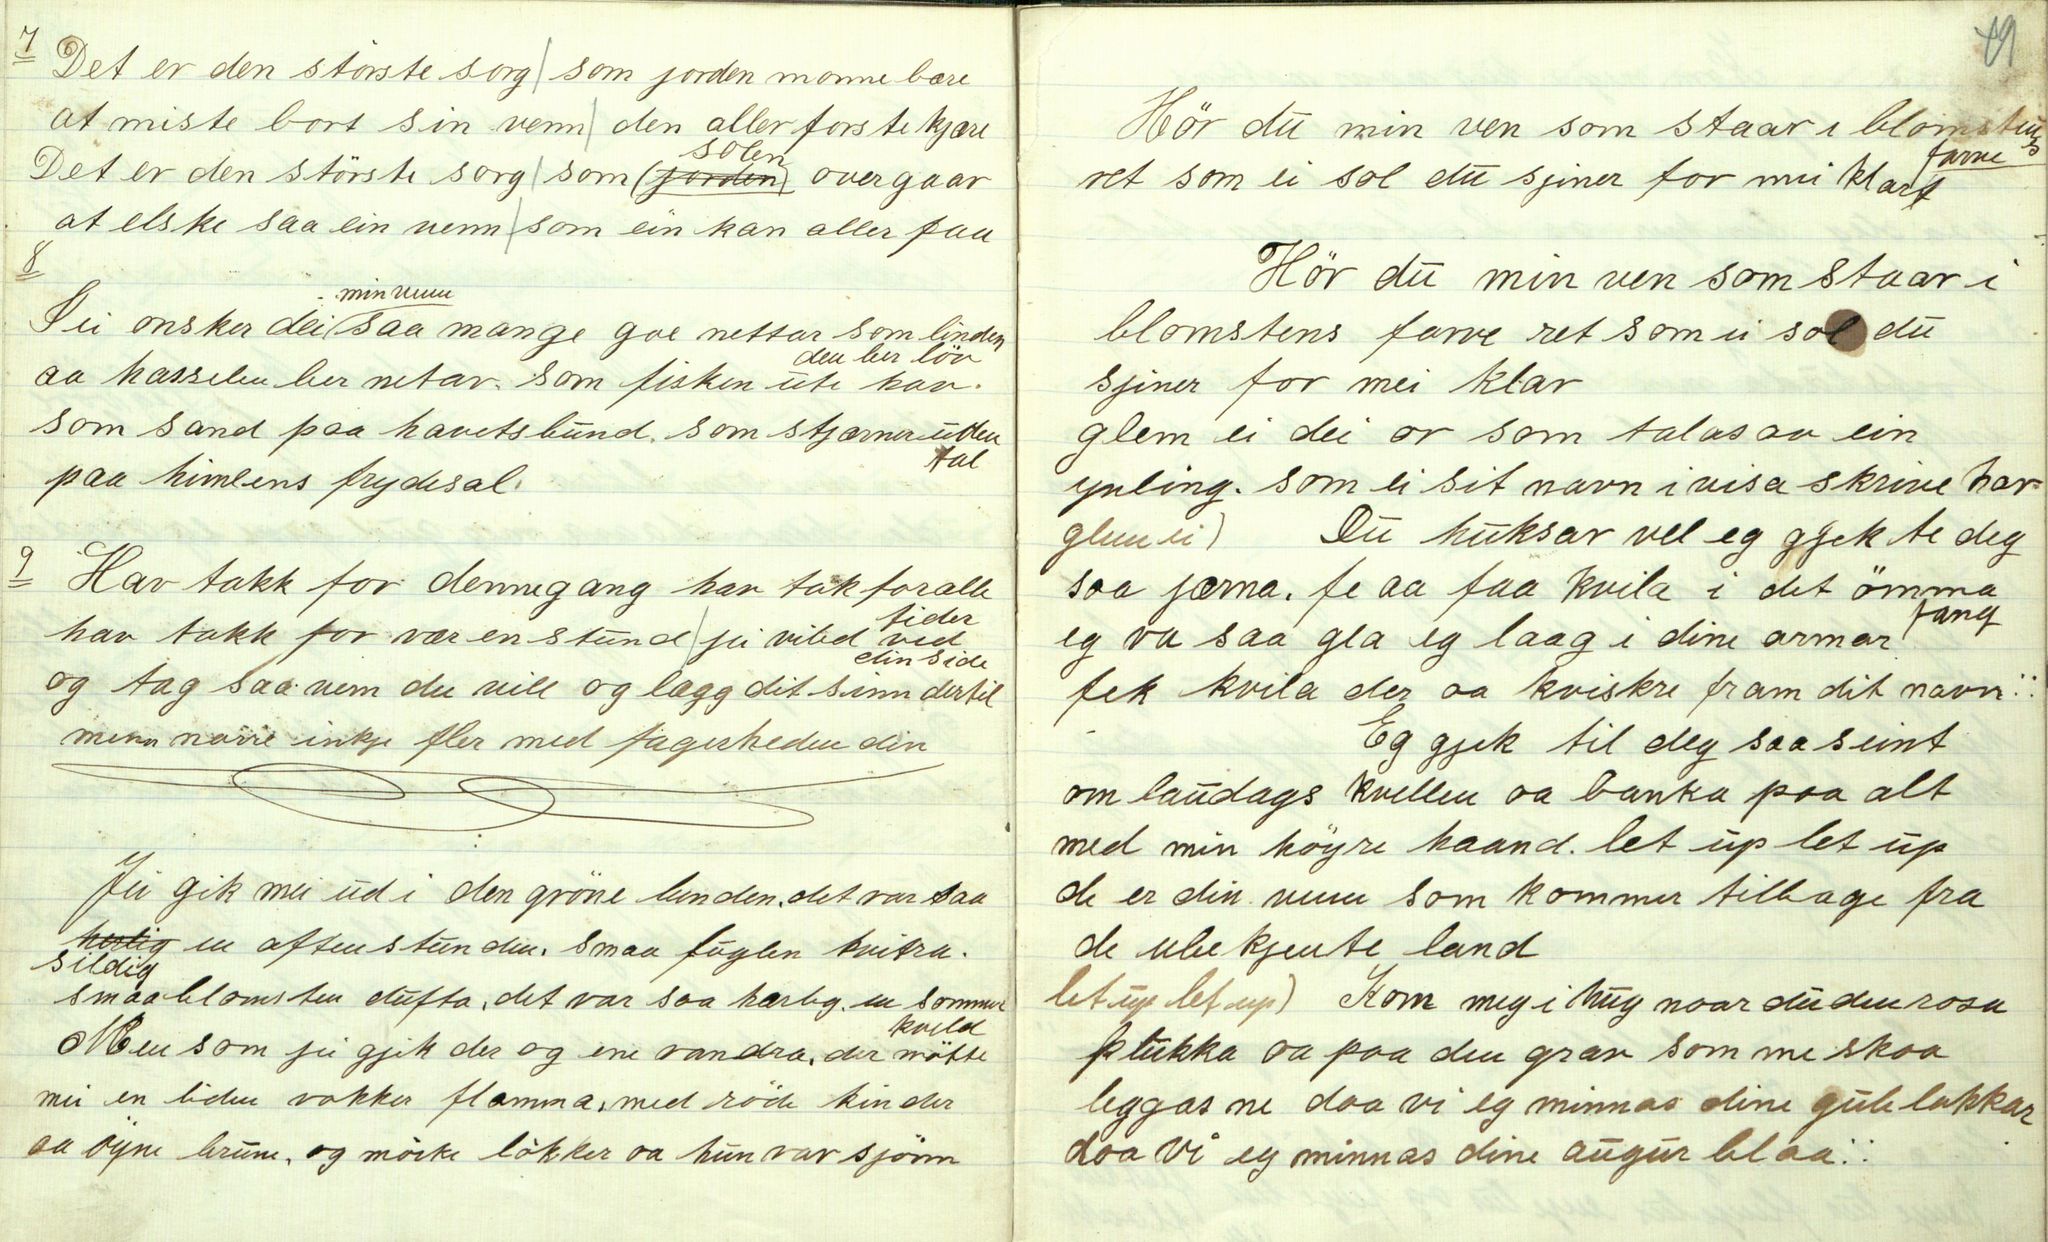 7
Det er den störste sorg / som jorden monne bære
at miste bort sin venn / den aller forste kjære
solen
Det er den störste sorg / som (jorden) overgaar
at elske saa ein venn / som ein kan aller faa
8
min venn
Jei onsker dei / saa mange goe nettar som linden
den ber löv
aa hasselen ber netar. som fisken ute hav.
som sand paa havets bund. som stjærner uden
tal
paa himlens frydesal.
9
Hav takk for dennegang hav tak for alle
tider
hav takk for vær en stund / jei viled ved
din side
og tag saa vem du vill og lægg dit sinn dertil
menn narre inkje fler med fagerheden din
Jei gik mei ud i den gröne lunden. det var saa
herlig en aftenstunden. smaa fuglen kvitra.
sildig
smaa blomsten dufta. det var saa hærlig. en sommer
kveld
Men som jei gjik der og ene vandra. der mötte
mei en liden vakker flamma. med röde kinder
aa öyne brune. og mörke lökker aa hun var sjönn
49
Hör du min ven som staar i blomstens
farve
ret som ei sol du sjiner for mei klart
Hör du min ven som staar i
blomstens farve ret som ei sol du
sjiner for mei klar
glem ei dei or som talas av ein
ynling. som ei sit navn i visa skrive har
glem ei) Du huksar vel eg gjek te deg
saa jærna. fe aa faa kvila i det ömma
fang
eg va saa gla eg laag i dine armar
fek kvila der aa kviskre fram dit navn :
Eg gjek til deg saa seint
om laudags kvellen aa banka paa alt
med min högre haand. let up let up
de er din venn som kommer tilbage fra
de ubekjente land
let up let up) Kom meg i hug naar du den rosa
plukka aa paa den grav som me skaa
leggas ne daa vi eg minnas dine gule lakkar
daa vi eg minnas dine augur blaa :